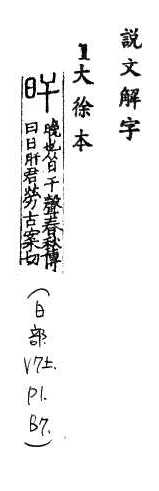 說文解字
1大徐本
旰 晚也从日干聲春秋傳
曰日旰君勞古案切
(日部 V7上. P1. B7.)